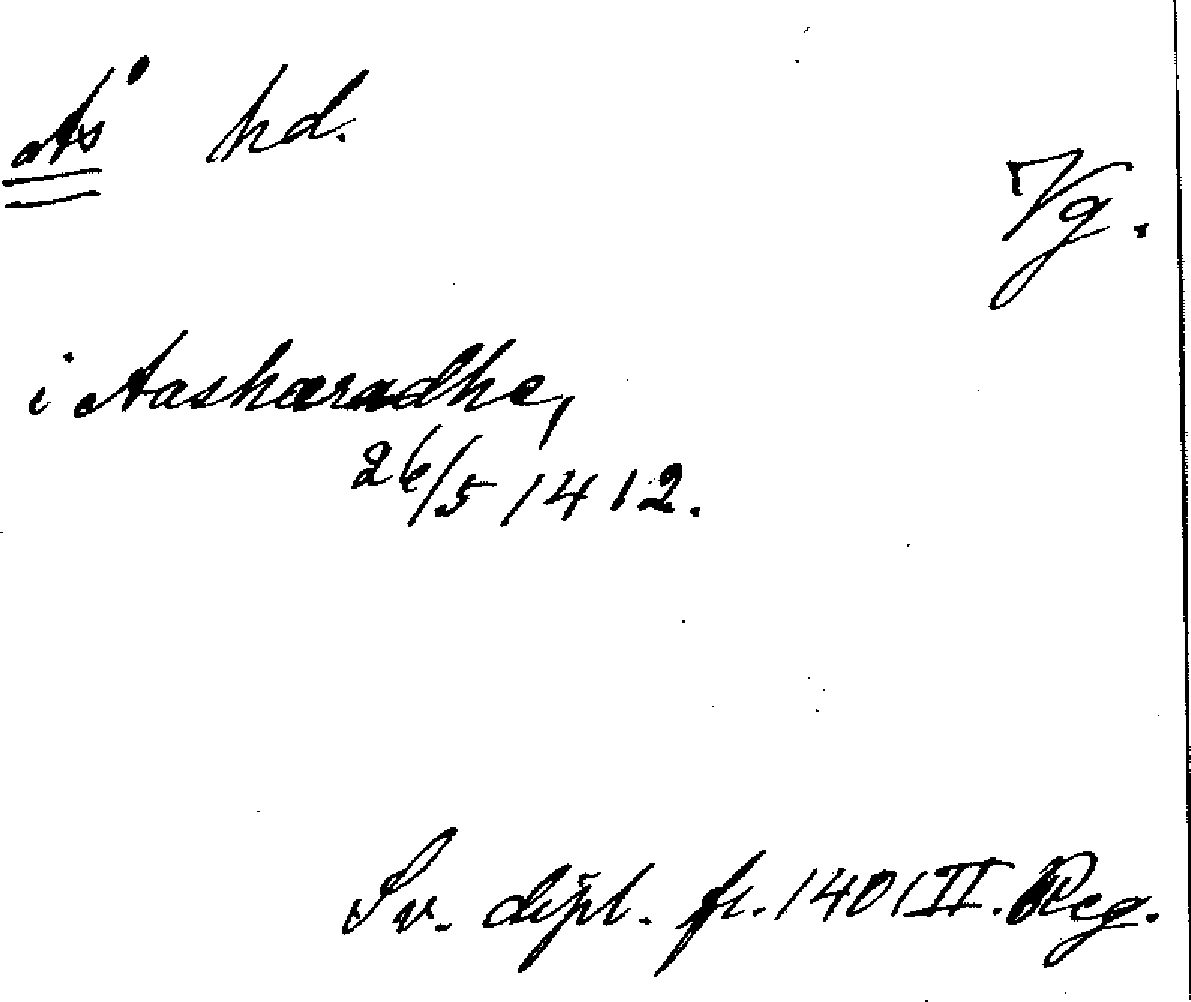 Ås hd.
Vg.
i Aashæradhe,
26/5 1412.
Sv. dipl. fr. 1401 II. Reg.